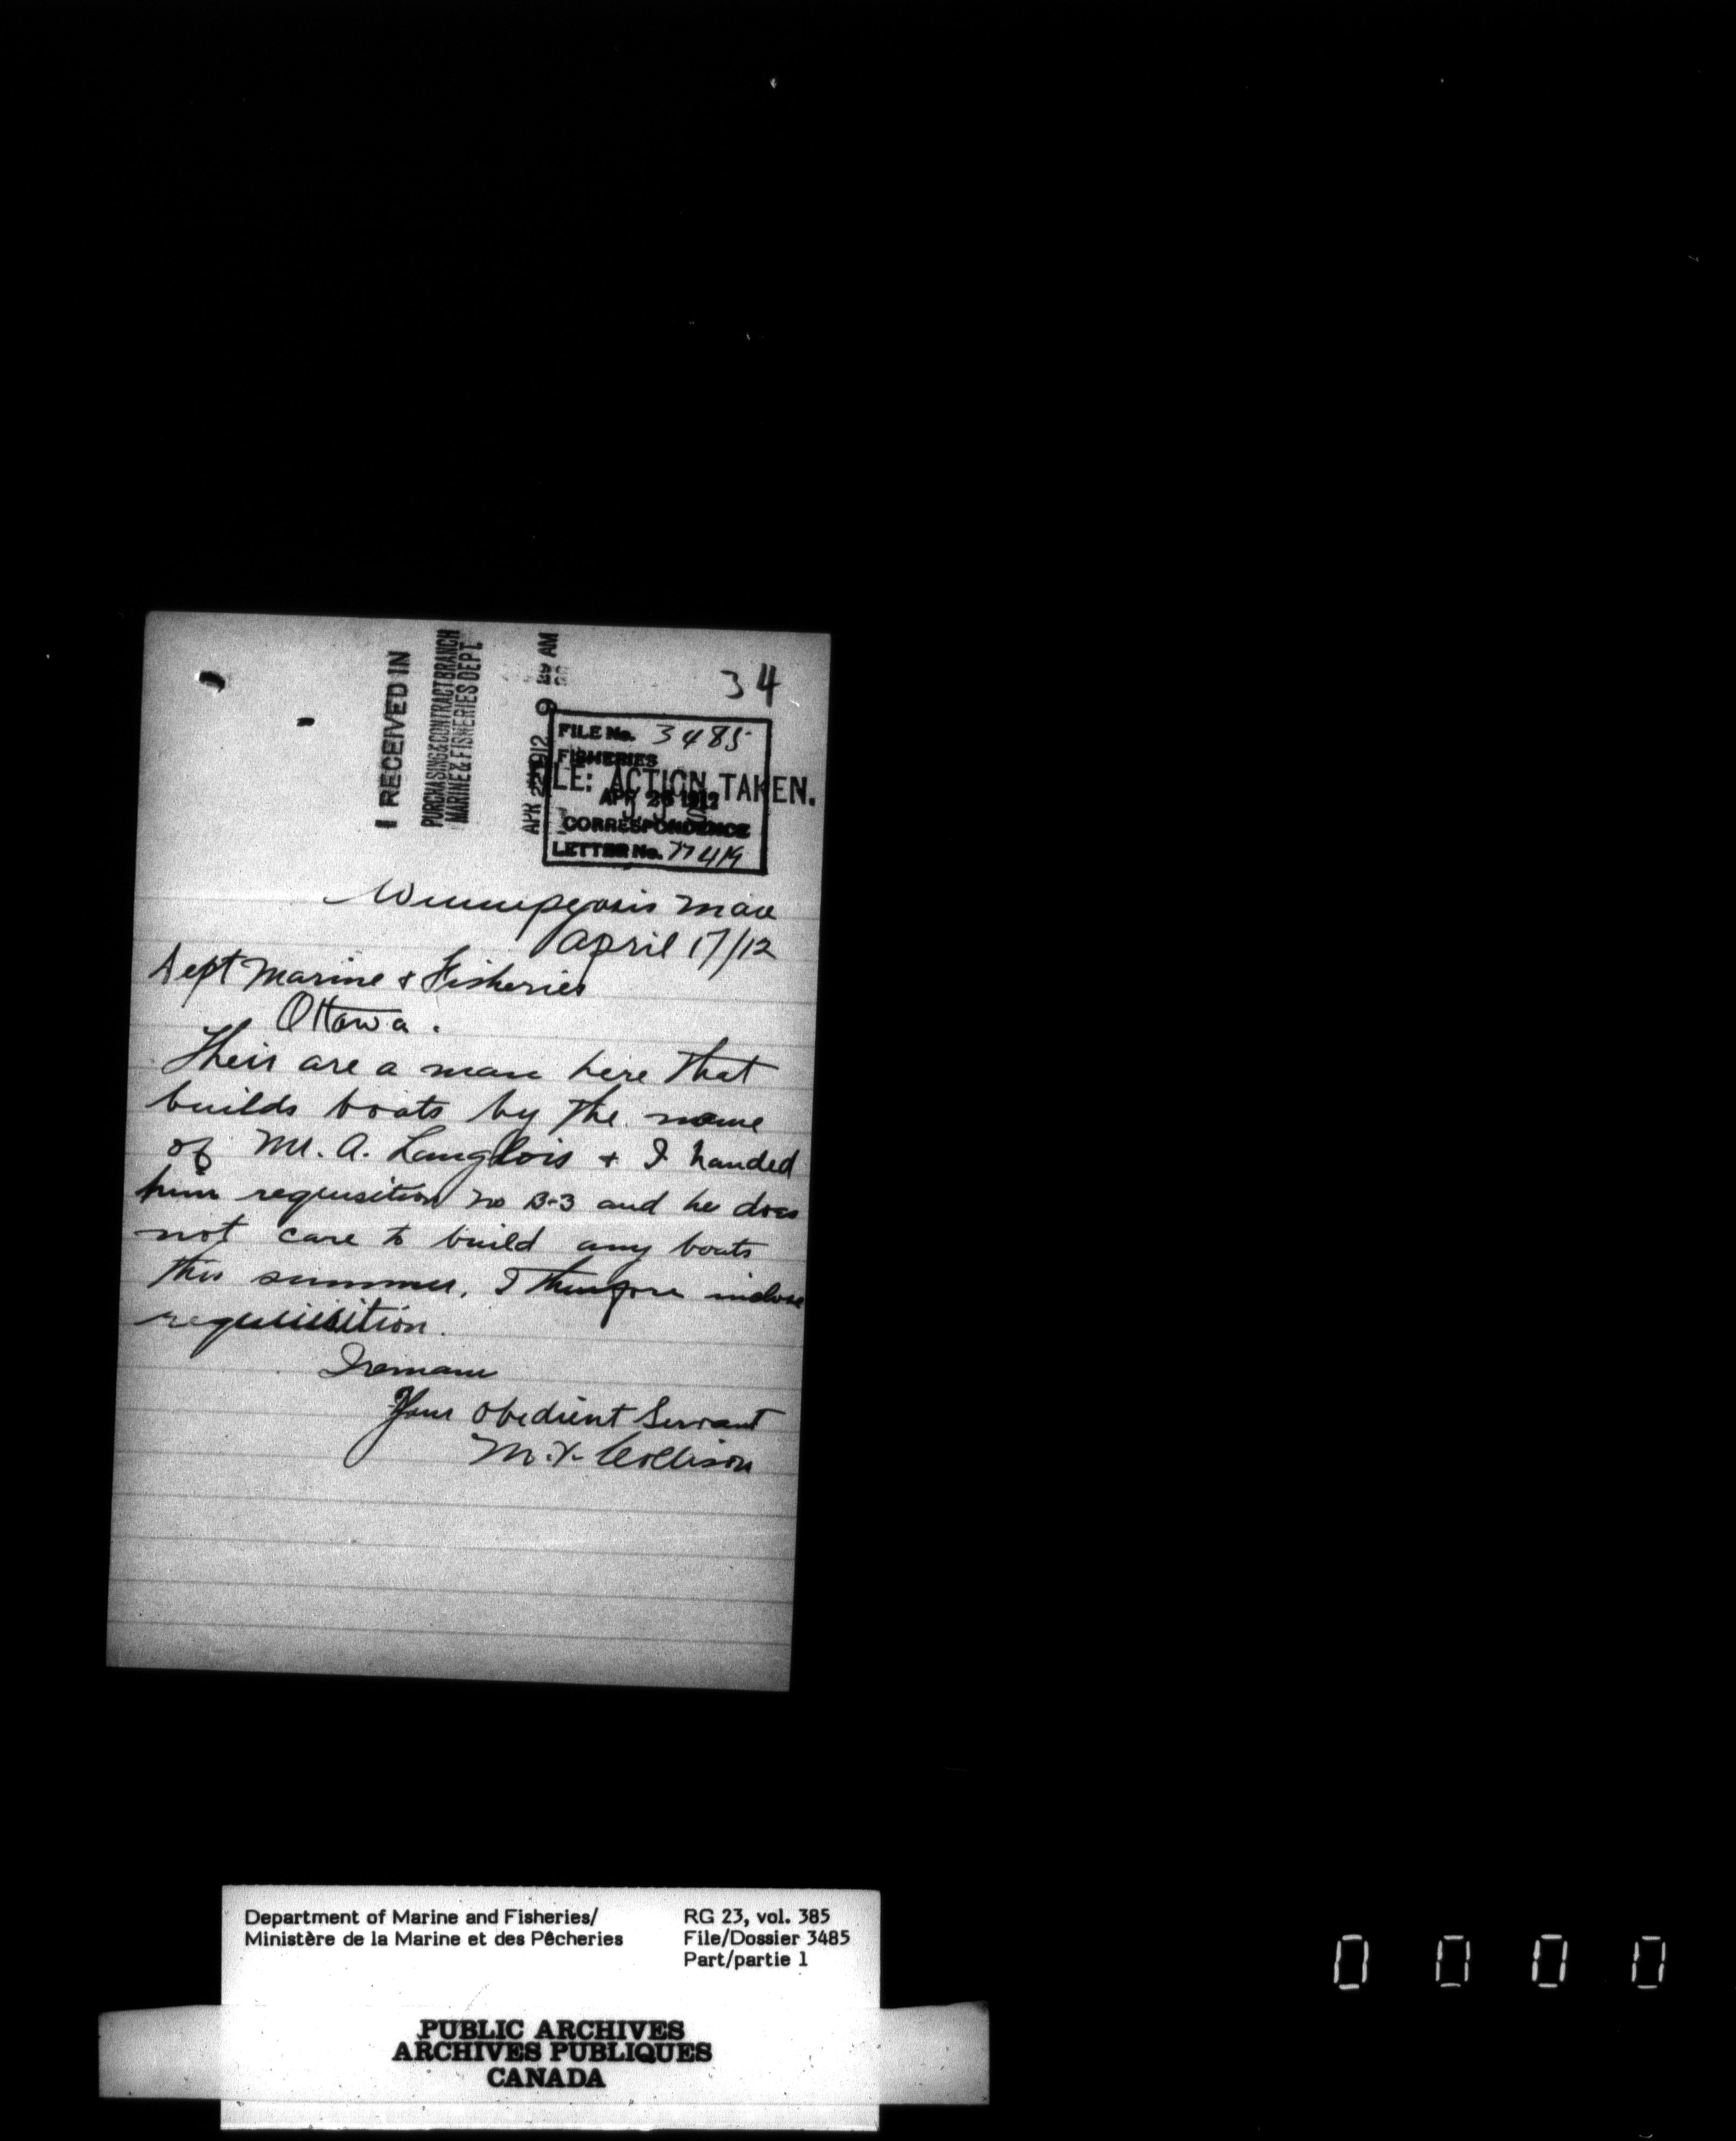 34
RECEIVED IN
PURCHASING & CONTRACT BRANCH
MARINE & FISHERIES DEPT.
APR 22 1912 9 AM
FILE No. 3485
FISHERIES
FILE: ACTION TAKEN.
APR 26 1912
CORRESPONDENCE
LETTER No.
Winnipegosis Man
April 17/12
Dept Marine & Fisheries
Ottawa.
Their are a man here that
builds boats by the name
of Mr. A. Langlois & I handed
him requisition no B-3 and he does
not care to build any boats
this summer. I therefore inclose
requisition.
I remain
Your Obedient Servant
Collison
Department of Marine and Fisheries/
Ministère de la Marine et des Pêcheries
RG 23, vol. 385
File/Dossier 3485
Part/partie 1
PUBLIC ARCHIVES
ARCHIVES PUBLIQUES
CANADA
0 0 0 0